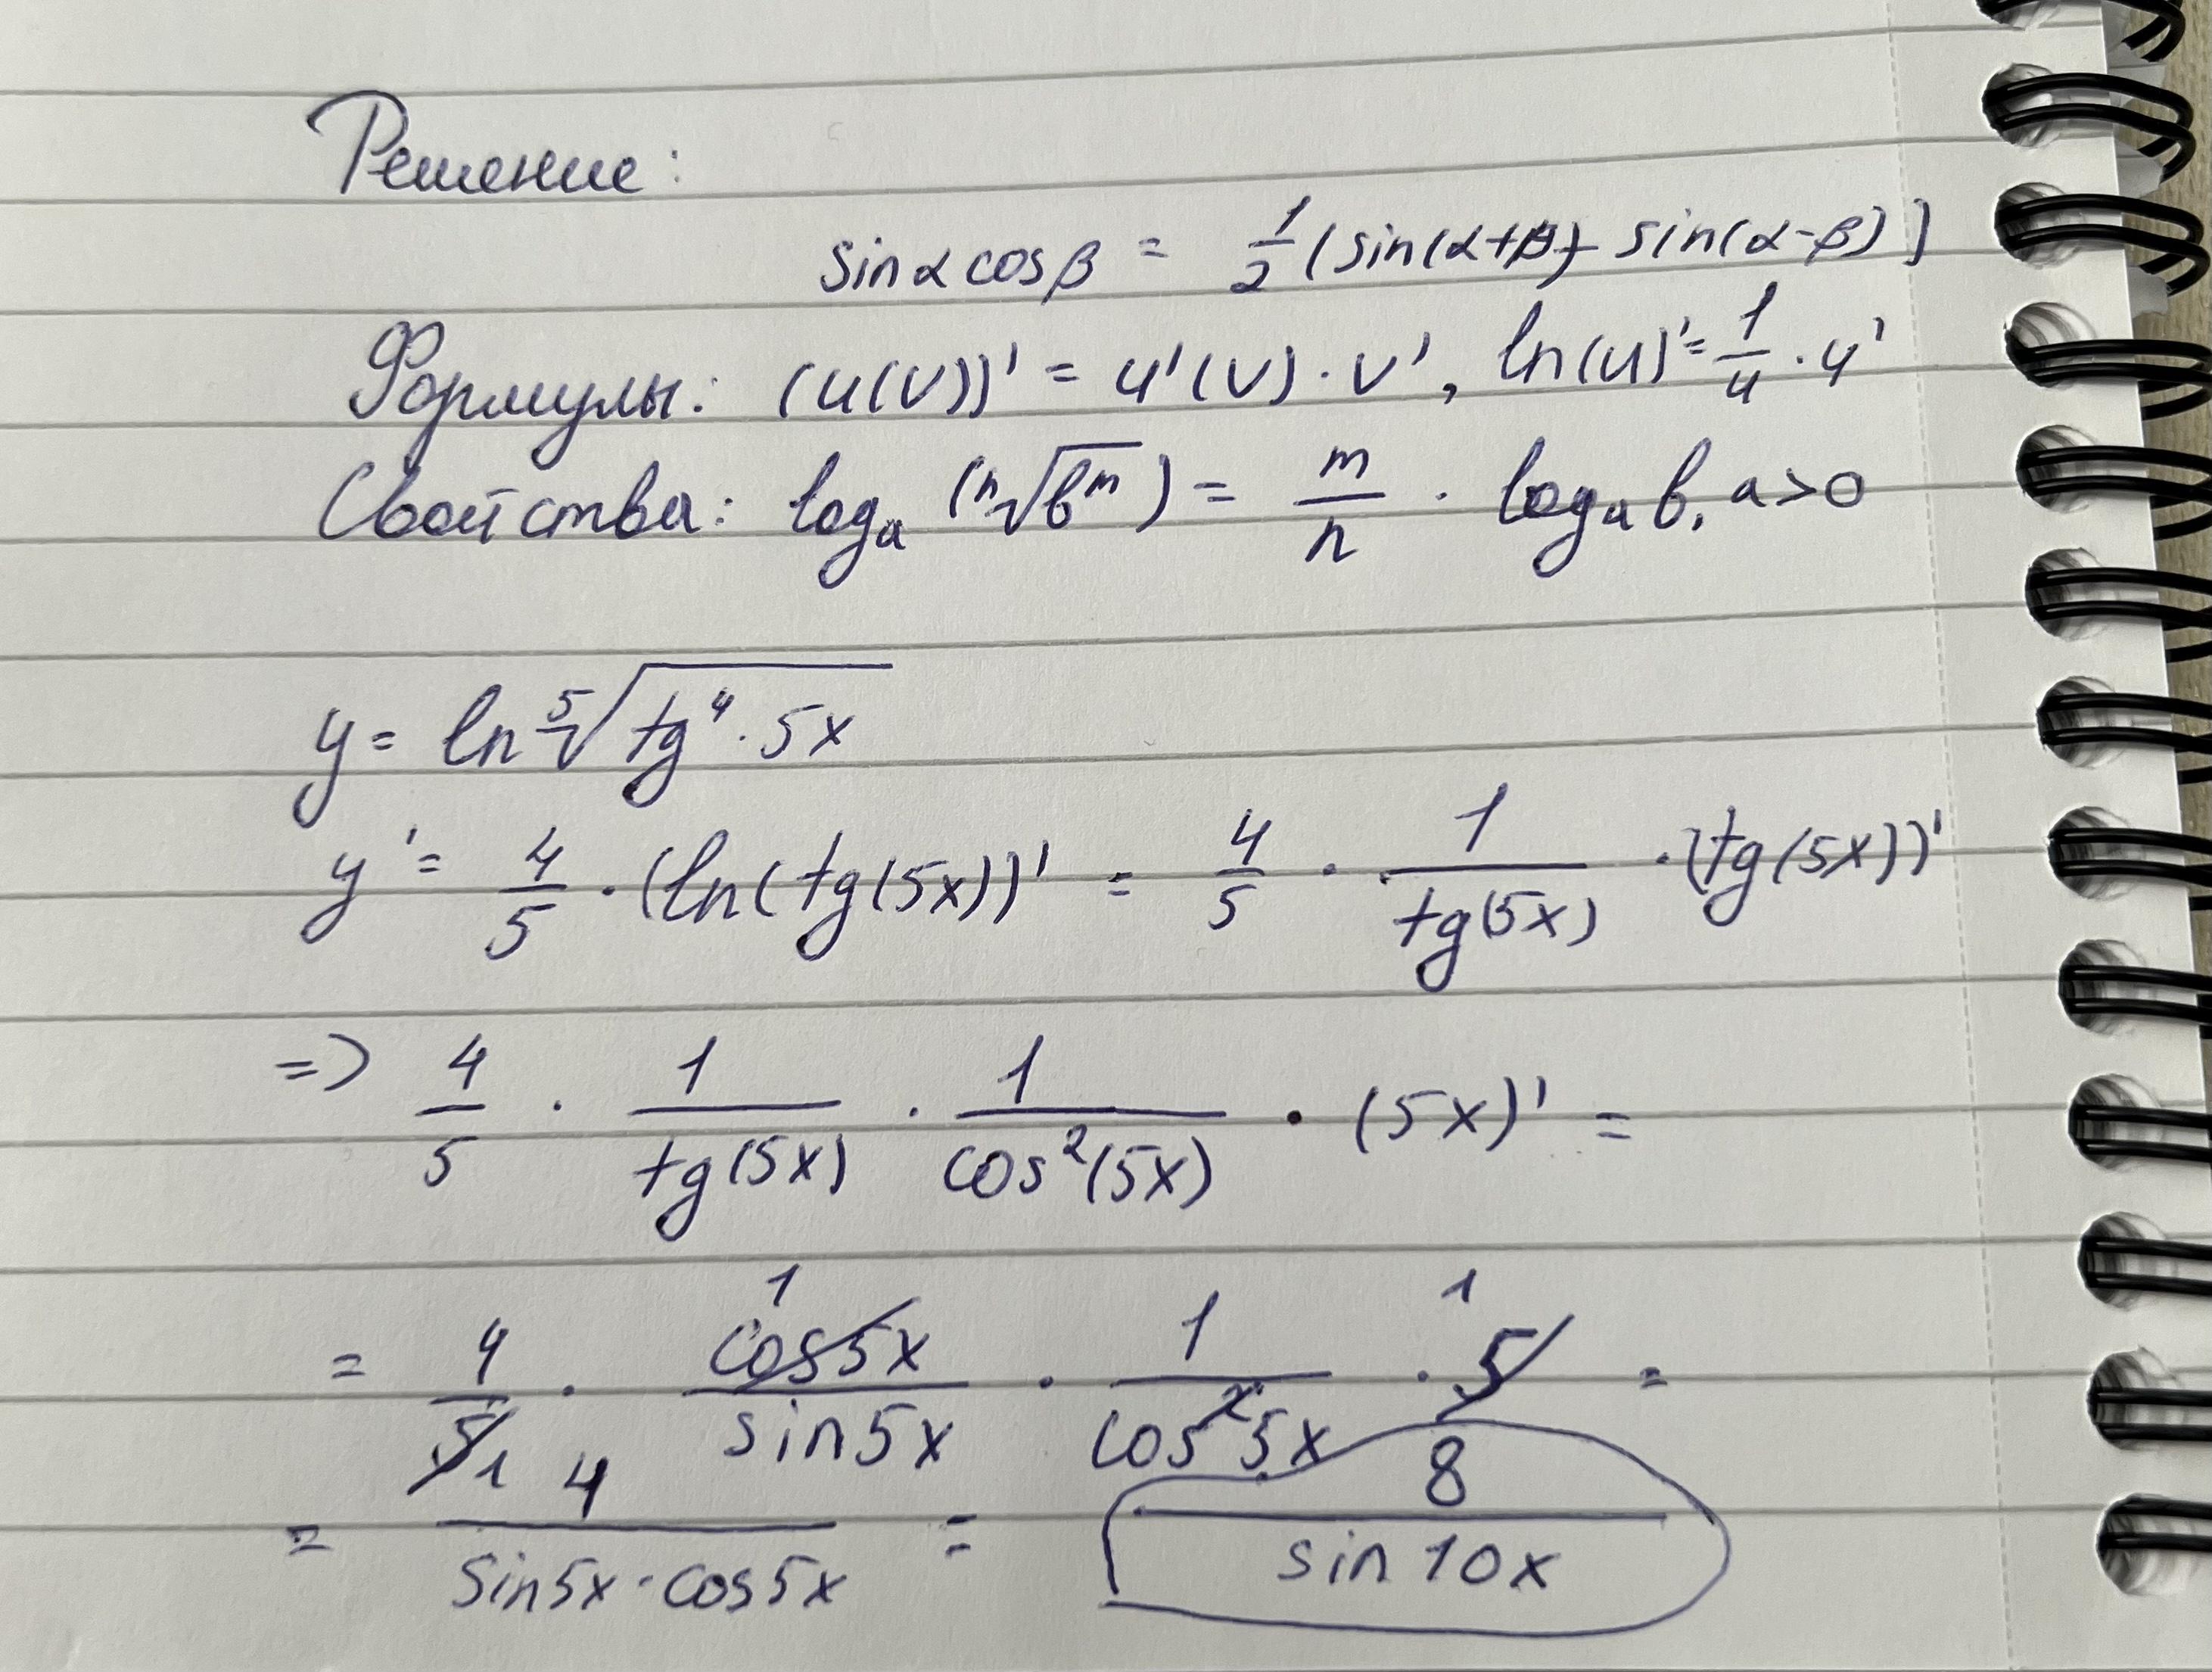 Решение:
sinα cosβ = 1/2 (sin(α+β) - sin(α-β))
Формулы: (u(v))' = u'(v) · v', ln(u)' = 1/u · u'
Свойства: logₐ (ⁿ√bᵐ) = m/n · logₐ b, a>0
y = ln ⁵√(tg⁴ · 5x)
y' = 4/5 · (ln(tg(5x))' = 4/5 · 1/tg(5x) · (tg(5x))'
=> 4/5 · 1/tg(5x) · 1/cos²(5x) · (5x)' =
= 4/5 1 · 1 cos5x/sin5x · 1/cos²5x · 5 1 =
= 4/(sin5x · cos5x) = 8/sin10x